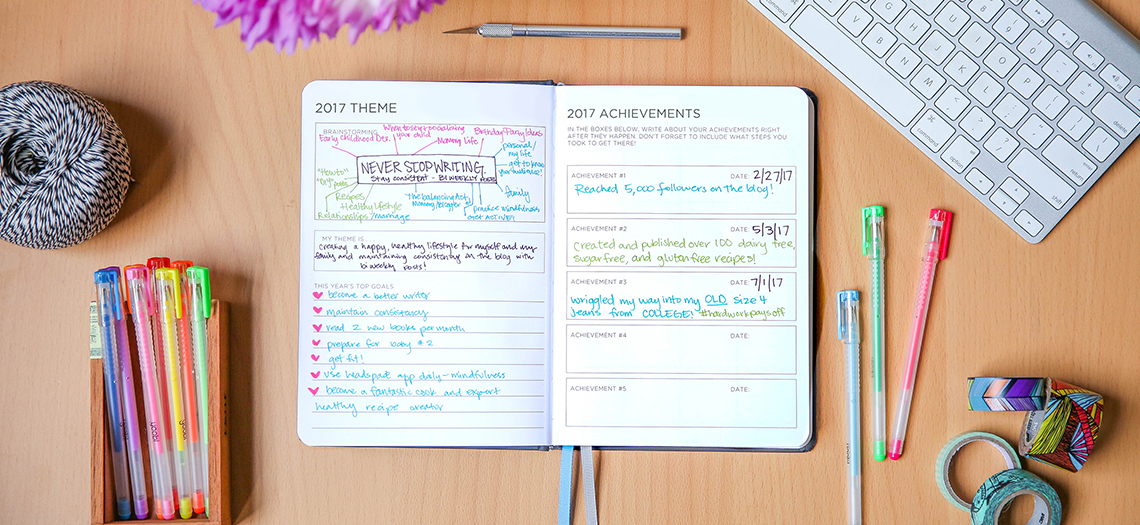 2017 THEME
BRAINSTORMING
Early childhood Dev.
When to say to socializing
your child
Mommy life
Birthday Party Ideas
personal/
my life
get to know
your audience!
NEVER STOP WRITING.
Stay consistent - BI WEEKLY posts
"How to"
"DIY" posts
Recipes
Healthy lifestyle
Relationships/marriage
The balancing Act,
Mommy & Blogger
family
practice mindfulness
GET ACTIVE!
MY THEME IS
creating a happy, healthy lifestyle for myself and my
family and maintaining consistency on the blog with
bi weekly posts!
THIS YEAR'S TOP GOALS
become a better writer
maintain consistency
read 2 new books per month
prepare for baby #2
get fit!
use headspace app daily - mindfulness
become a fantastic cook and expert
healthy recipe creator
2017 ACHIEVEMENTS
IN THE BOXES BELOW, WRITE ABOUT YOUR ACHIEVEMENTS RIGHT
AFTER THEY HAPPEN. DON'T FORGET TO INCLUDE WHAT STEPS YOU
TOOK TO GET THERE!
ACHIEVEMENT #1 DATE: 2/27/17
Reached 5,000 followers on the blog!
ACHIEVEMENT #2 DATE: 5/3/17
Created and published over 100 dairy free,
sugar free, and gluten free recipes!
ACHIEVEMENT #3 DATE: 7/1/17
wriggled my way into my OLD size 4
jeans from COLLEGE! #hardworkpaysoff
ACHIEVEMENT #4 DATE:
ACHIEVEMENT #5 DATE:
yoobi
command
option
command
option
control
delete
return
shift